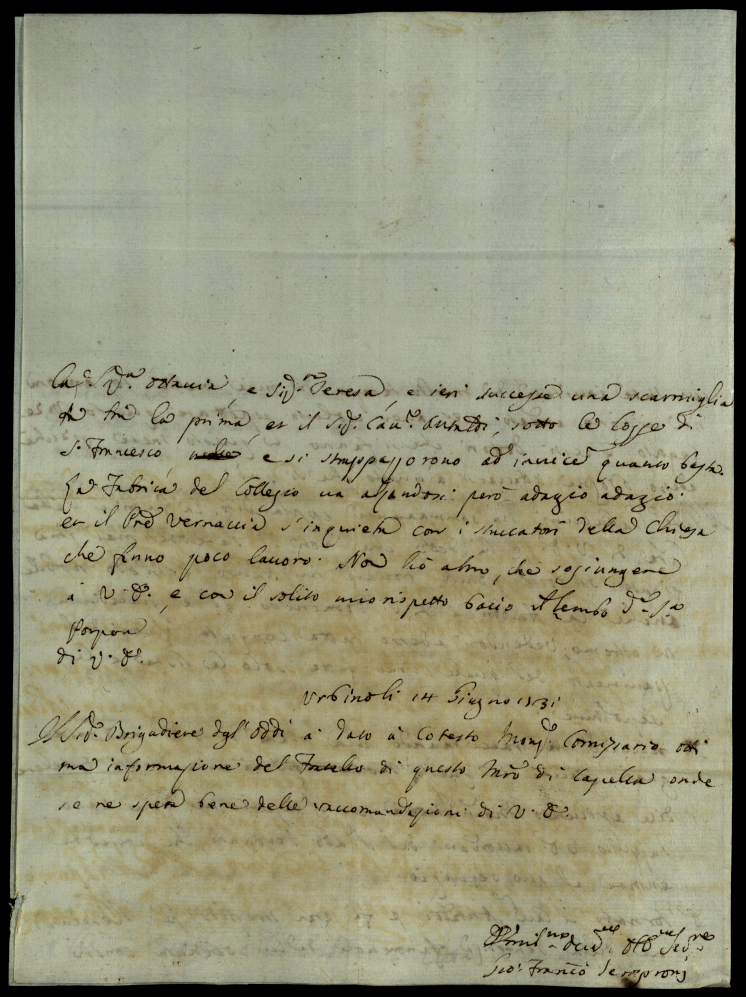 la Sig.ra Ottavia, e Sig.ra Teresa, e ieri successe una scarmiglia
ta trà la prima, et il Sig.r Cav.re Antaldi, sotto le logge di
S. Francesco, e si strapazzorono ad' invicē quanto basta.
La Fabrica del Collegio va alzandosi però adagio adagio.
et il Prē Vernaccia s'inquieta con i stuccatori della Chiesa
che fanno poco lavoro. Non hò altro, che sogiungere
à V. E., e con il solito mio rispetto bacio il lembo d.a Sa
Porpora
di V. E.
Urbino li 14 Giugno 1731
Il Sig.r Brigadiere dgl' Oddi à dato à cotesto Mons.r Comissario otti
ma informazione del Fratello di questo Mrō di Capella onde
se ne spera bene delle raccomandazioni di V. E.
Umil.mo Dev.mo Obb.mo Ser.re
Gio: Francō Semproni